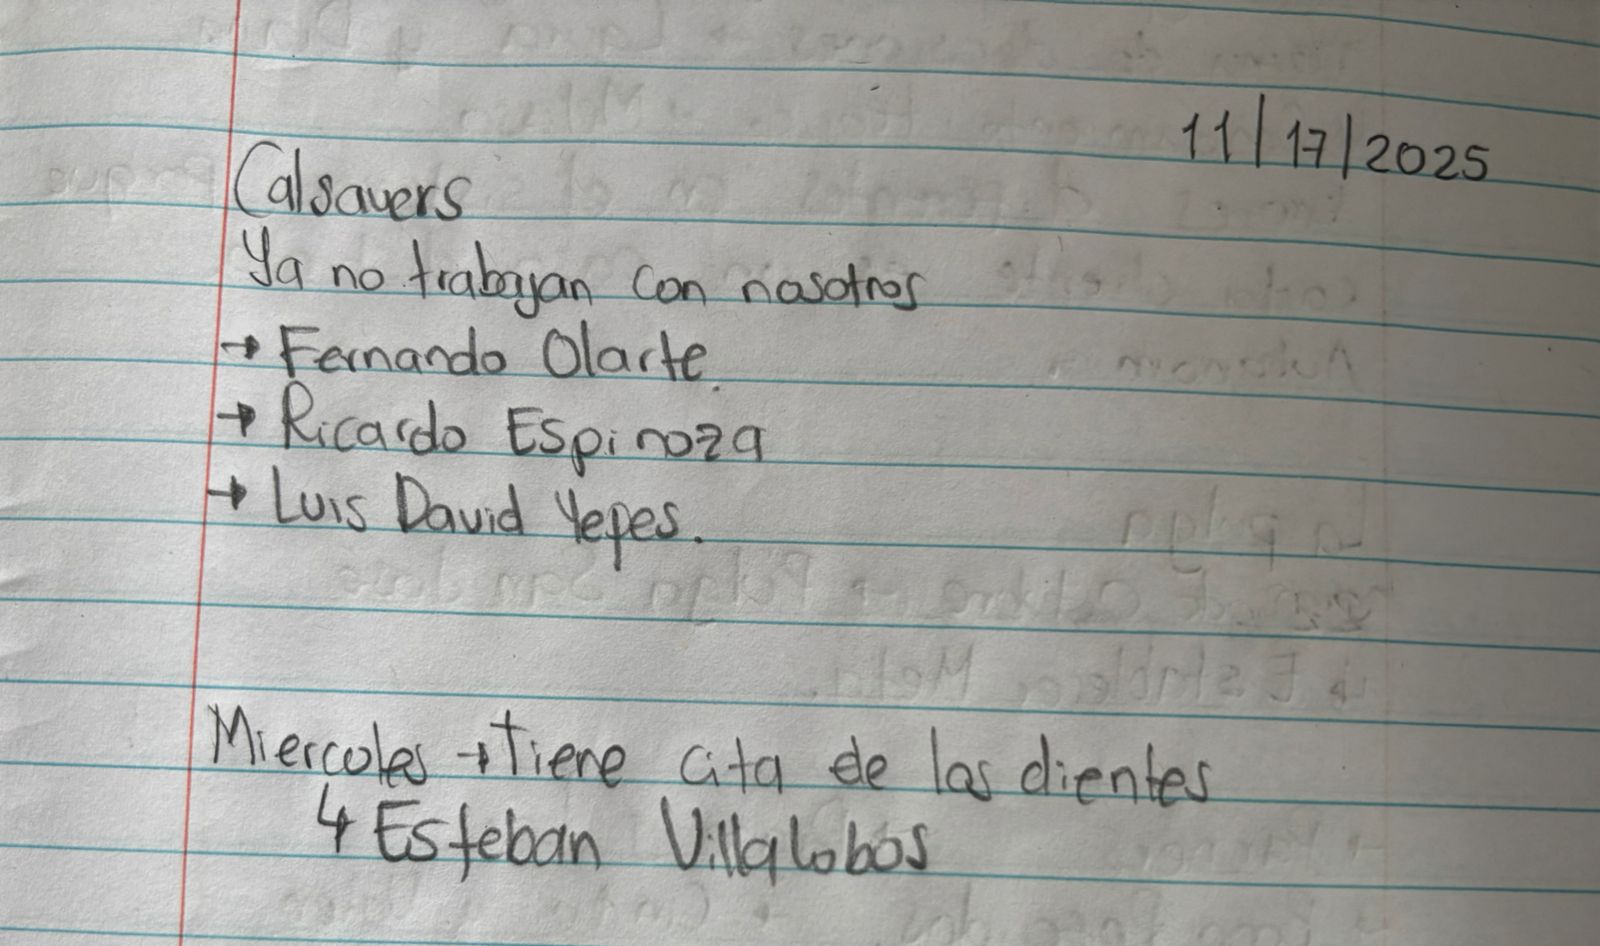 11/17/2025
Calsavers
Ya no trabajan con nosotros
→ Fernando Olarte.
→ Ricardo Espinoza
→ Luis David Yepes.
Miercoles → Tiene cita de los dientes
↳ Esteban Villalobos